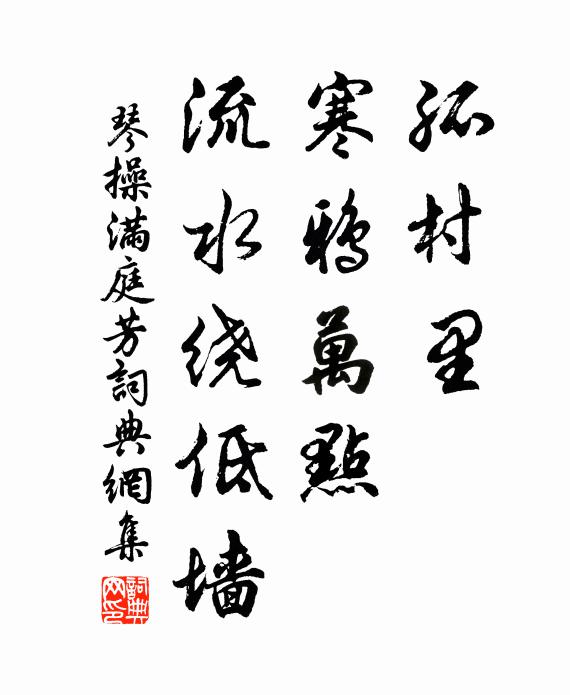 孤村里
寒鴉萬點
流水绕低墙
琴操滿庭芳詞典網集
詞典网印